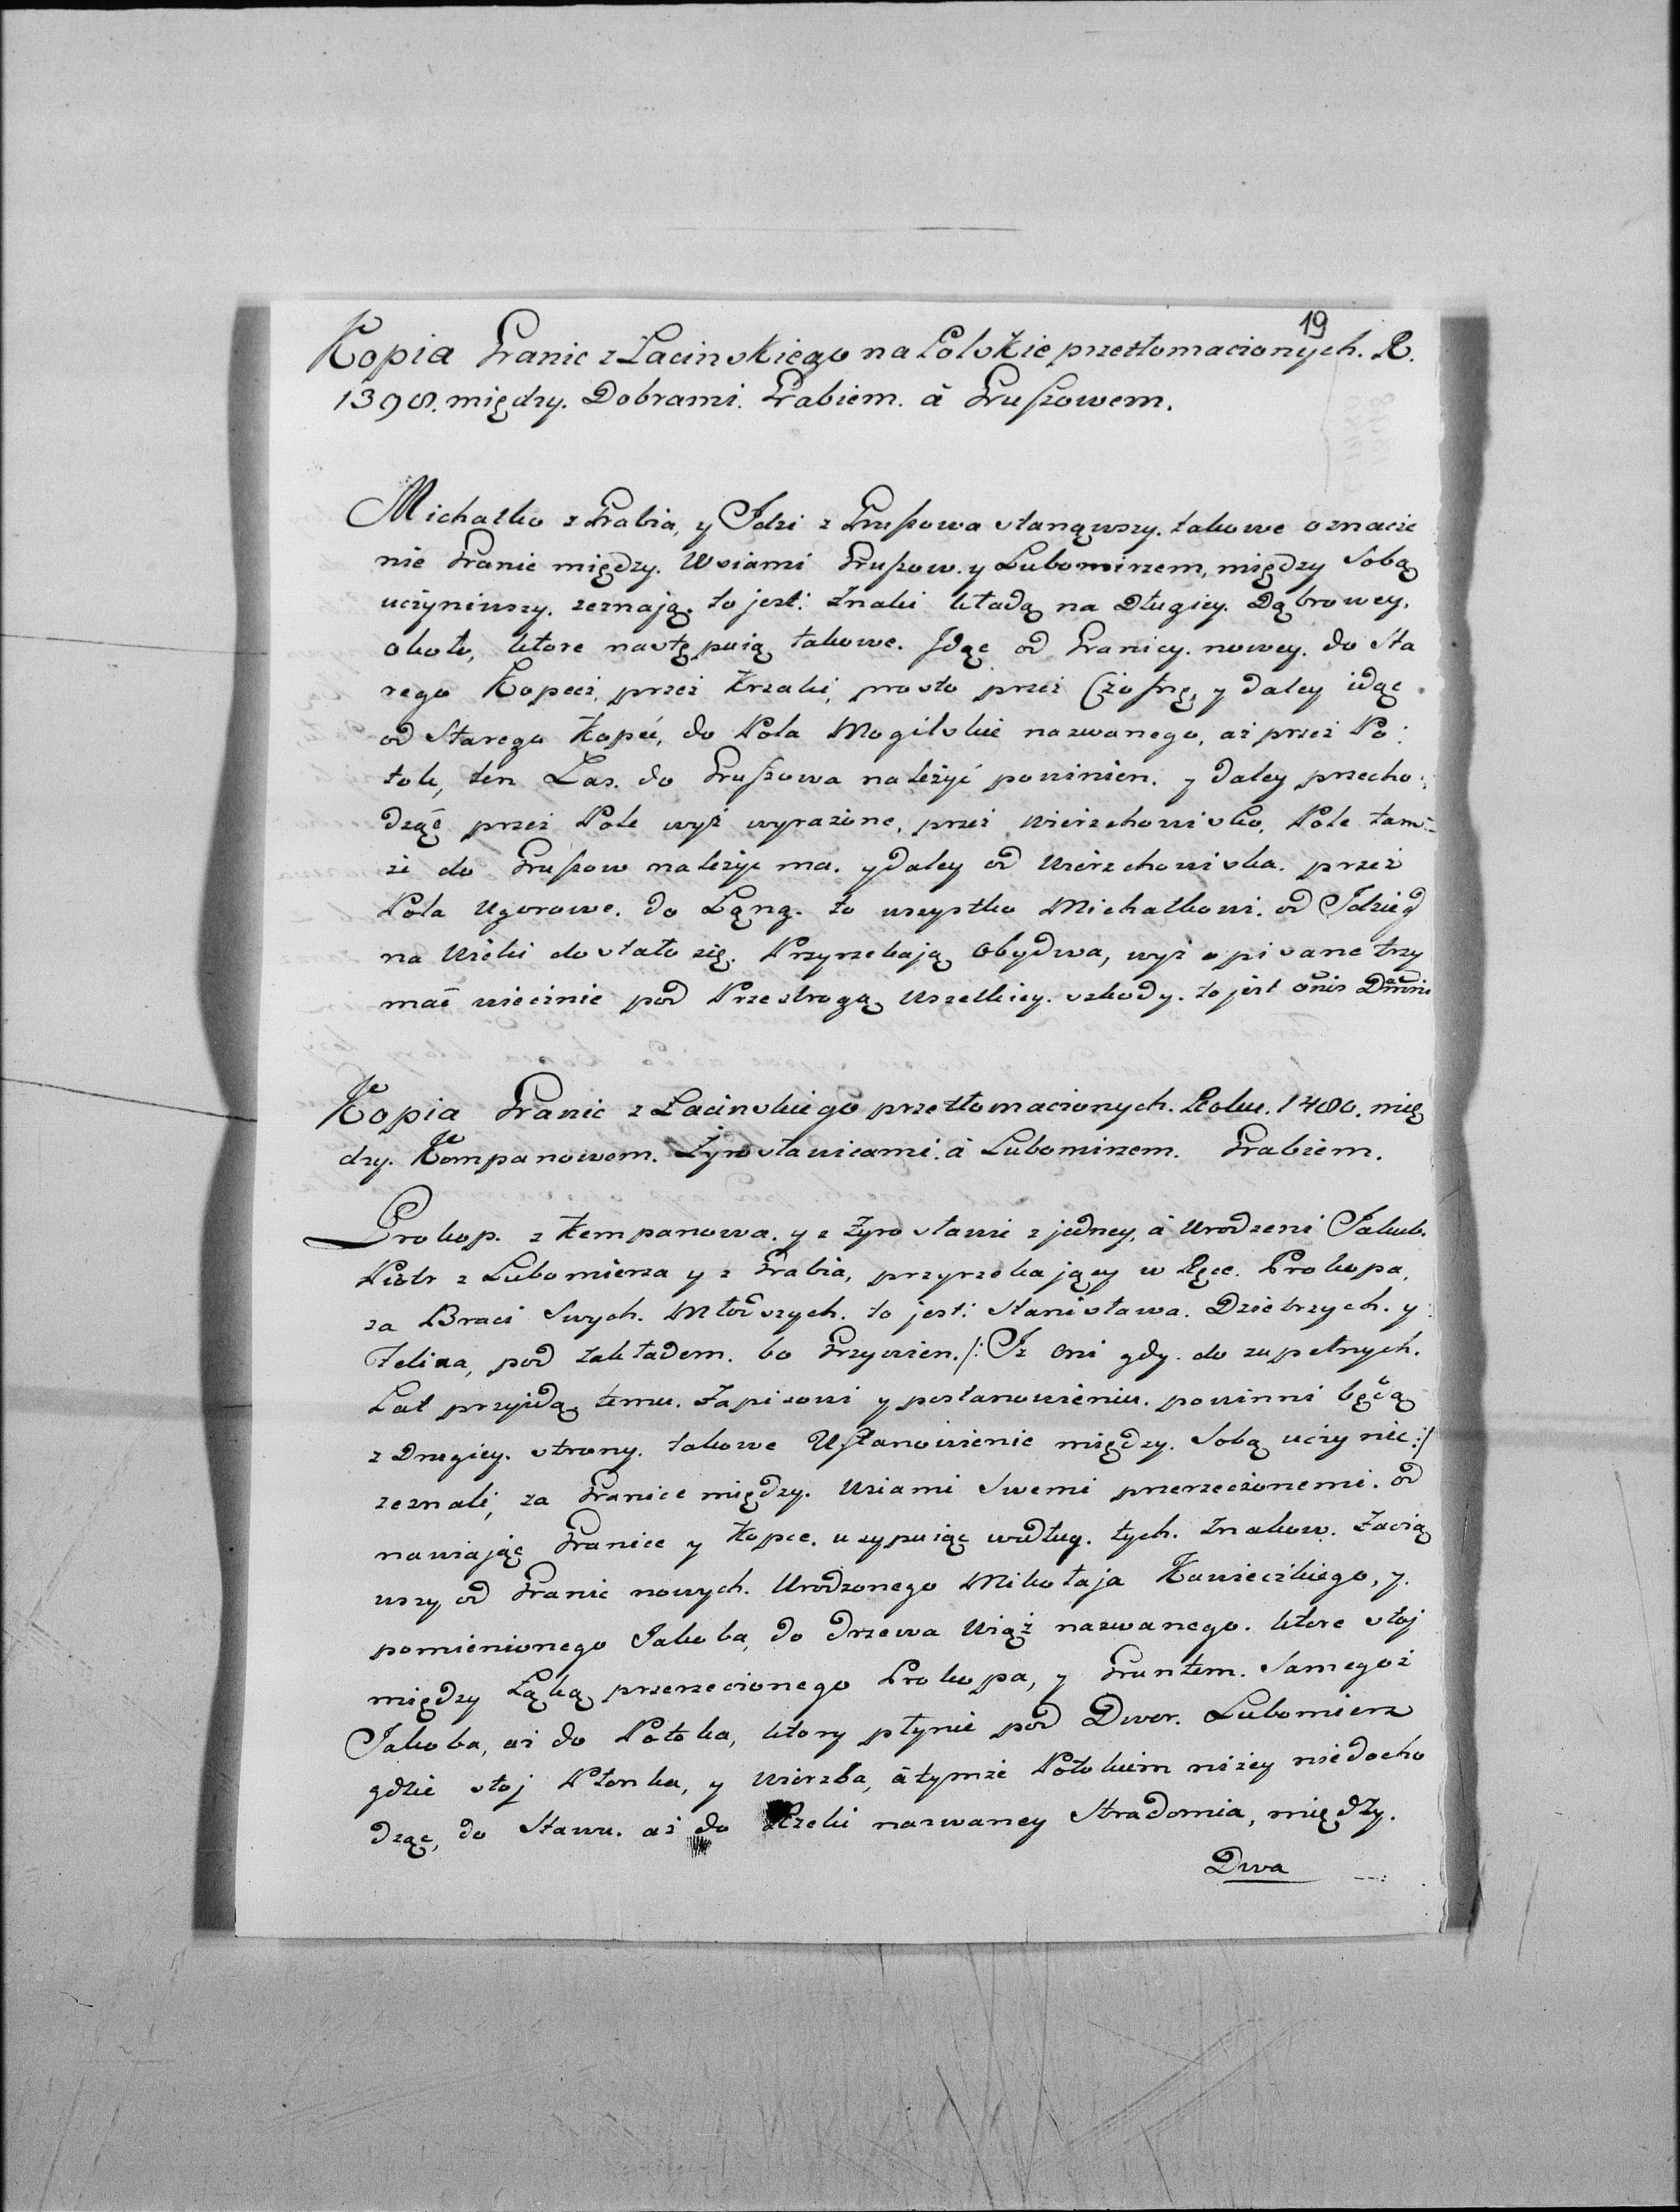 19
Kopia Granic z Łacinskiego na Polskie przetłomaczonych. R.
1398. między. Dobrami. Grabiem. à Gruszowem.
Michałko z Grabia, y Jdzi z Gruszowa stanąwszy. takowe oznacze
nie Granic między. Wsiami Gruszow. y Lubomirzem, między Sobą
uczyniwszy. zeznają. to jest: Znaki kładą na Długiey. Dąbrowey.
około, ktore następuią takowe. Jdąc od Granicy. nowey. do Sta
rego Kopca, przez Krzaki, prosto przez y daley idąc
od Starego Kopca, do Pola Mogilskie nazwanego, aż przez Po:
tok, ten Las. do Gruszowa należyć powinien. y daley przecho:
dząc przez Pole wyż wyrażone, przez wierzchowisko, Pole tam:
że do Gruszow należyc ma. y daley od Wierzchowiska. przez
Pola Ugorowe. do Łąną. to wszystko Michałkowi. od Jdzieg
na Wieki dostało się. Przyrzekają Obydwa, wyż opisane trzy
mać wiecznie pod Przestrogą Wszelkiey. szkody. to jest
Kopia Granic z Łacinskiego przetłomaczonych. Roku. 1480. mię
dzy. Kempanowem. Żyrosławicami. à Lubomirzem. Grabiem.
Prokop. z Kempanowa. y z Żyrosławic z jedney, à Urodzeni Jakub.
Piotr z Lubomierza y z Grabia, przyrzekający w Ręce. Prokopa,
za Braci Swych. Młodszych. to jest: Stanisława. Dzietrzych. y
Felixa, pod zakładem. 60 Grzywien. /: Jz Oni gdy. do zupełnych.
Lat przyidą, temu. Zapisowi y postanowieniu. powinni będą
z Drugiey. strony. takowe Ustanowienie między. Sobą uczynić :/
zeznali, za Granice między. Wsiami Swemi przerzeczonemi. od
nawiając Granice y Kopce. usypuiąc według. tych. Znakow. Zacią
wszy od Granic nowych. Urodzonego Mikołaja Kawieczkiego, y.
pomienionego Jakoba, do drzewa Wiąz nazwanego. ktore stoj
między Łąką przerzeczonego Prokopa, y Gruntem. Samegoż
Jakoba, aż do Potoka, ktory płynie pod Dwor. Lubomierz
gdzie stoj Płonka, y Wierzba, à tymże Potokiem niżey niedocho
dząc, do Stawu. aż do Rzeki nazwaney Stradomia, między.
Dwa